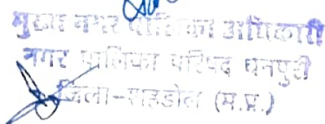 मुख्य नगर पालिका अधिकारी
नगर पालिका परिषद धनपुरी
जिला-शहडोल (म.प्र.)